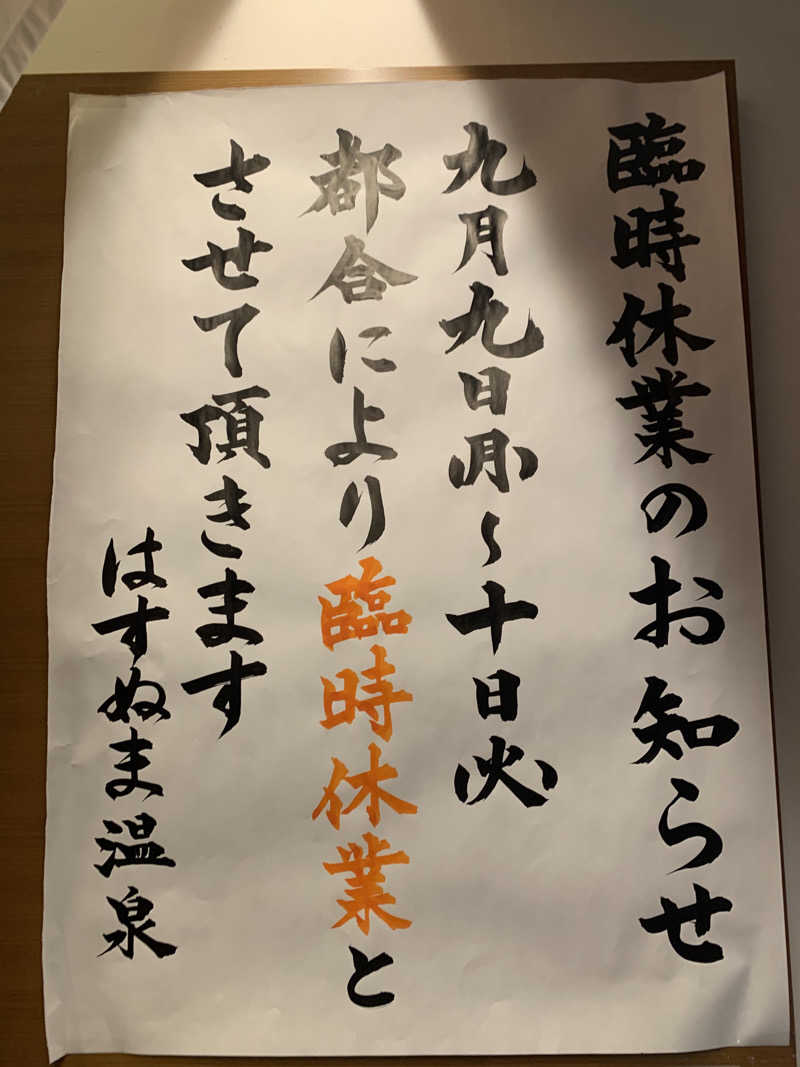 臨時休業のお知らせ
九月九日(月)～十日(火)
都合により臨時休業と
させて頂きます
はすぬま温泉